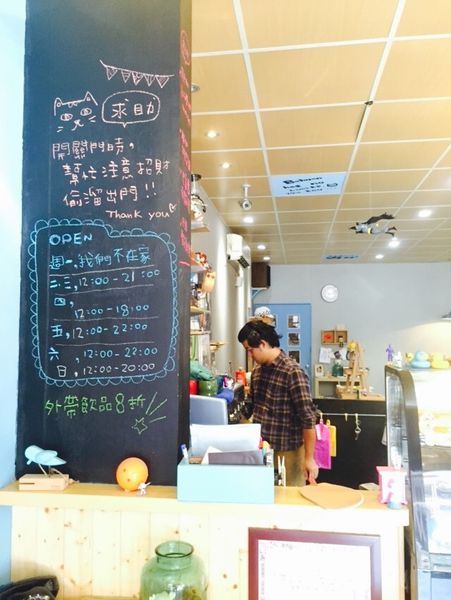 求助
開關門時,
幫忙注意招財
偷溜出門!!
Thank you
OPEN
週一,我們不在家
二.三,12:00-21:00
四,
12:00-18:00
五,12:00-22:00
六,12:00-22:00
日,12:00-20:00
外帶飲品8折